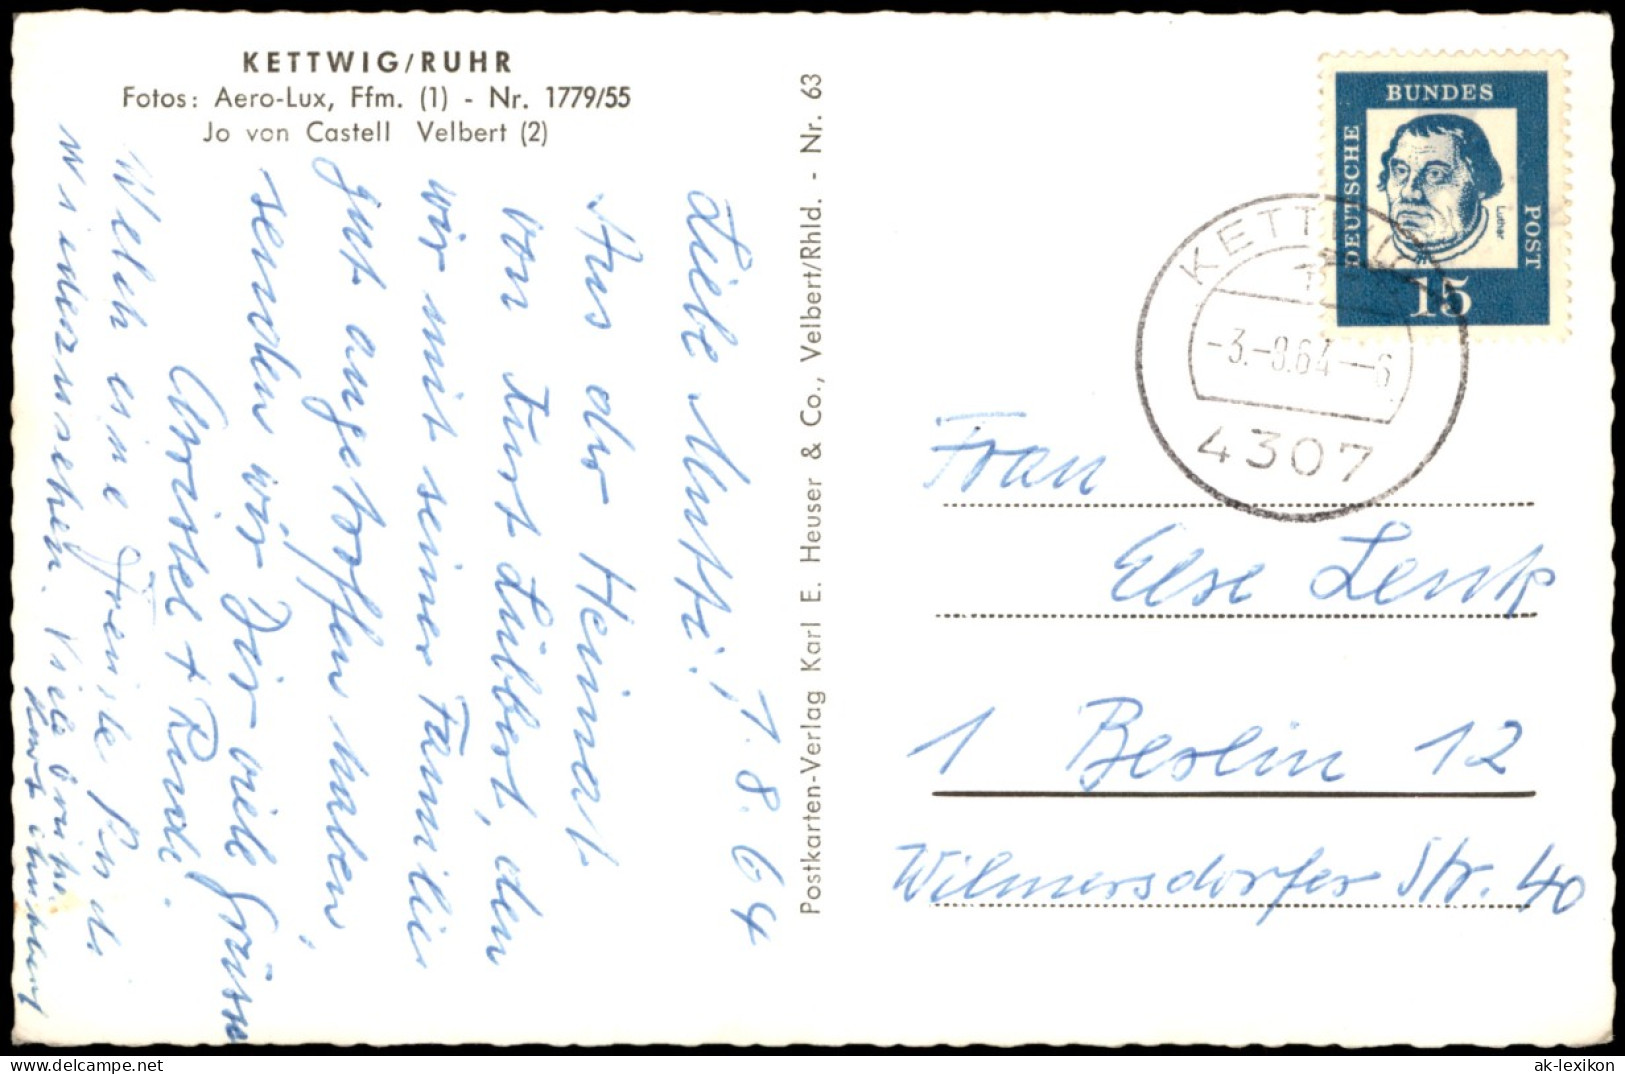 KETTWIG/RUHR
Fotos: Aero-Lux, Ffm. (1) - Nr. 1779/55
Jo von Castell Velbert (2)
Liebe Mutti! 1.8.64
Aus der Heimat
von Kurt Lübbert, den
wir mit seiner Familie
gut angetroffen haben,
senden wir Dir viele Grüsse
Christel + Rudi.
Welch eine Freude Rudi
wiederzusehen. Viele Grüße
Kurt
Postkarten-Verlag Karl E. Heuser & Co., Velbert/Rhld. - Nr. 63
DEUTSCHE
BUNDES
POST
Luther
15
KETTWIG
1
-3.-8.64--6
4307
Frau
Else Lenk
1 Berlin 12
Wilmersdorfer Str. 40
ak-lexikon